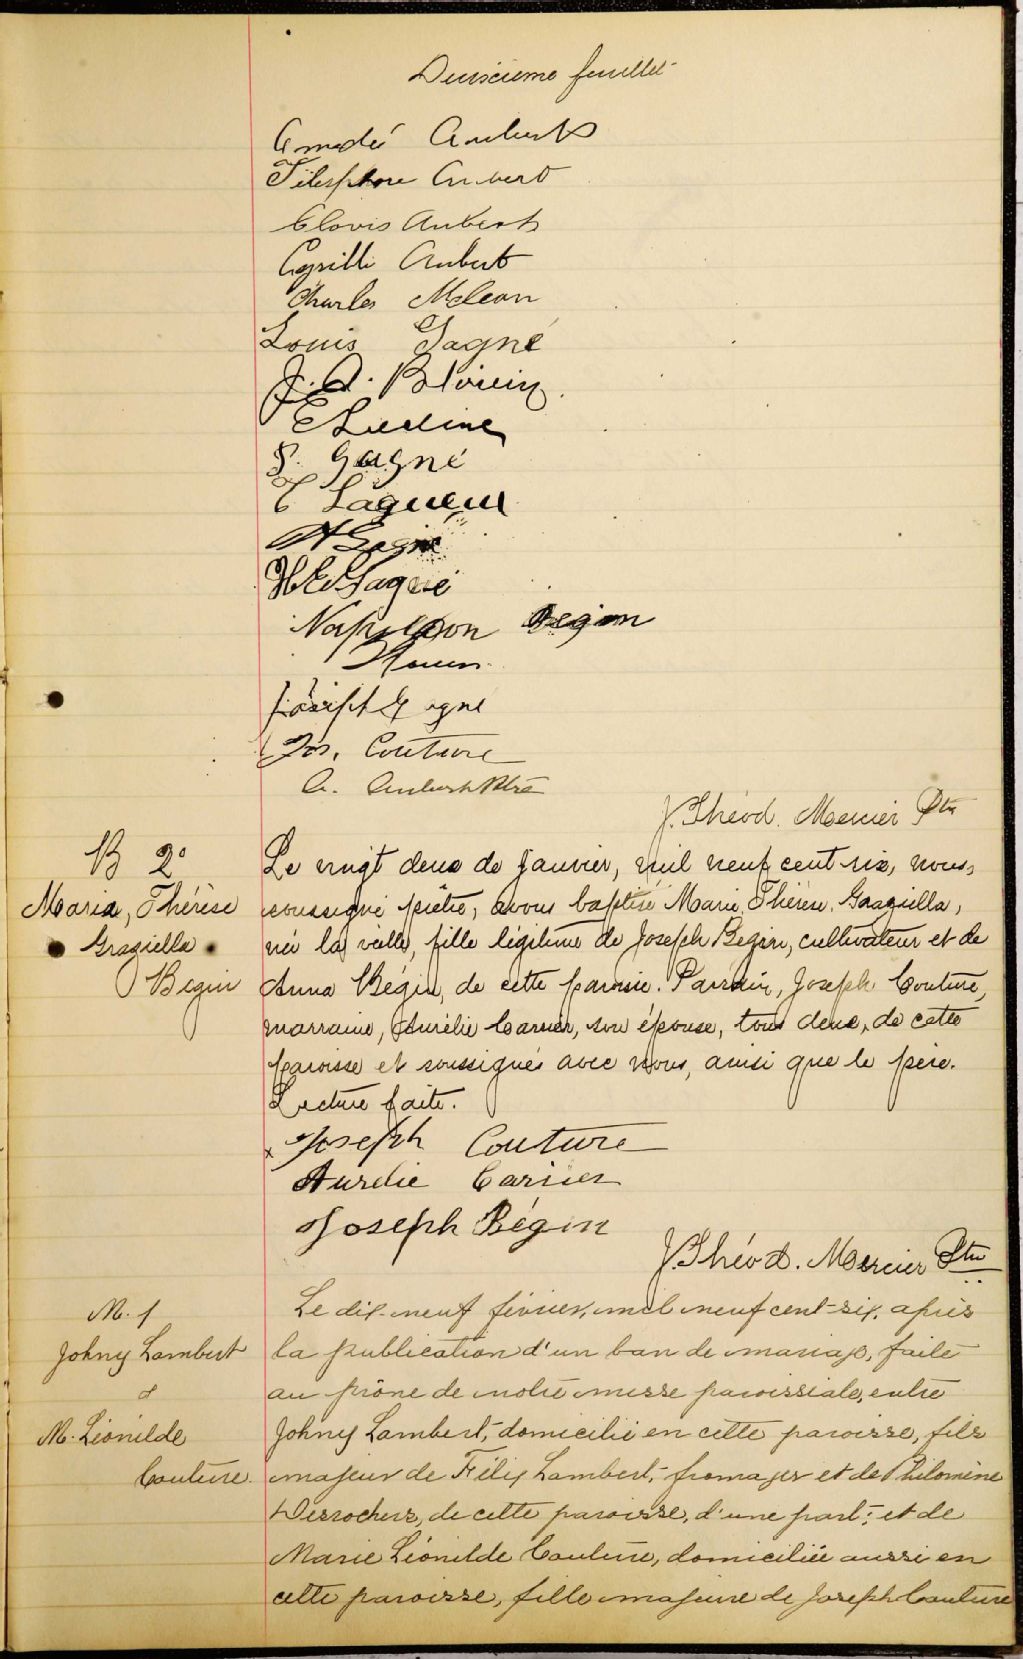 Deuxième feuillet
Amédé Aubert
Télesphore Aubert
Clovis Aubert
Cyrille Aubert
Charles McLean
Louis Gagné
J. A. Blouin
S. Gagné
Gagné
Napoleon Begin
Joseph Gagné
Jos. Couture
A. Aubert Ptre
J. Théod. Mercier Ptre
B 2º
Maria, Thérèse
Graziella
Begin
Le vingt deux de Janvier, mil neuf cent six, nous,
soussigné prêtre, avons baptisé Marie, Thérèse, Graziella,
née la veille, fille légitime de Joseph Begin, cultivateur et de
Anna Bégin, de cette paroisse. Parrain, Joseph Couture,
marraine, Aurélie Carrier, son épouse, tous deux, de cette
paroisse et soussignés avec nous, ainsi que le père.
Lecture faite.
x Joseph Couture
Aurelie Carrier
Joseph Bégin
J. Théod. Mercier Ptre
M. 1
Johny Lambert
&
M. Léonilde
Couture
Le dix-neuf février, mil neuf cent-six, après
la publication d'un ban de mariage, faite
au prône de notre messe paroissiale, entre
Johny Lambert, domicilié en cette paroisse, fils
majeur de Félix Lambert, fromager et de Philomène
Desrochers, de cette paroisse, d'une part; et de
Marie Léonilde Couture, domiciliée aussi en
cette paroisse, fille majeure de Joseph Couture